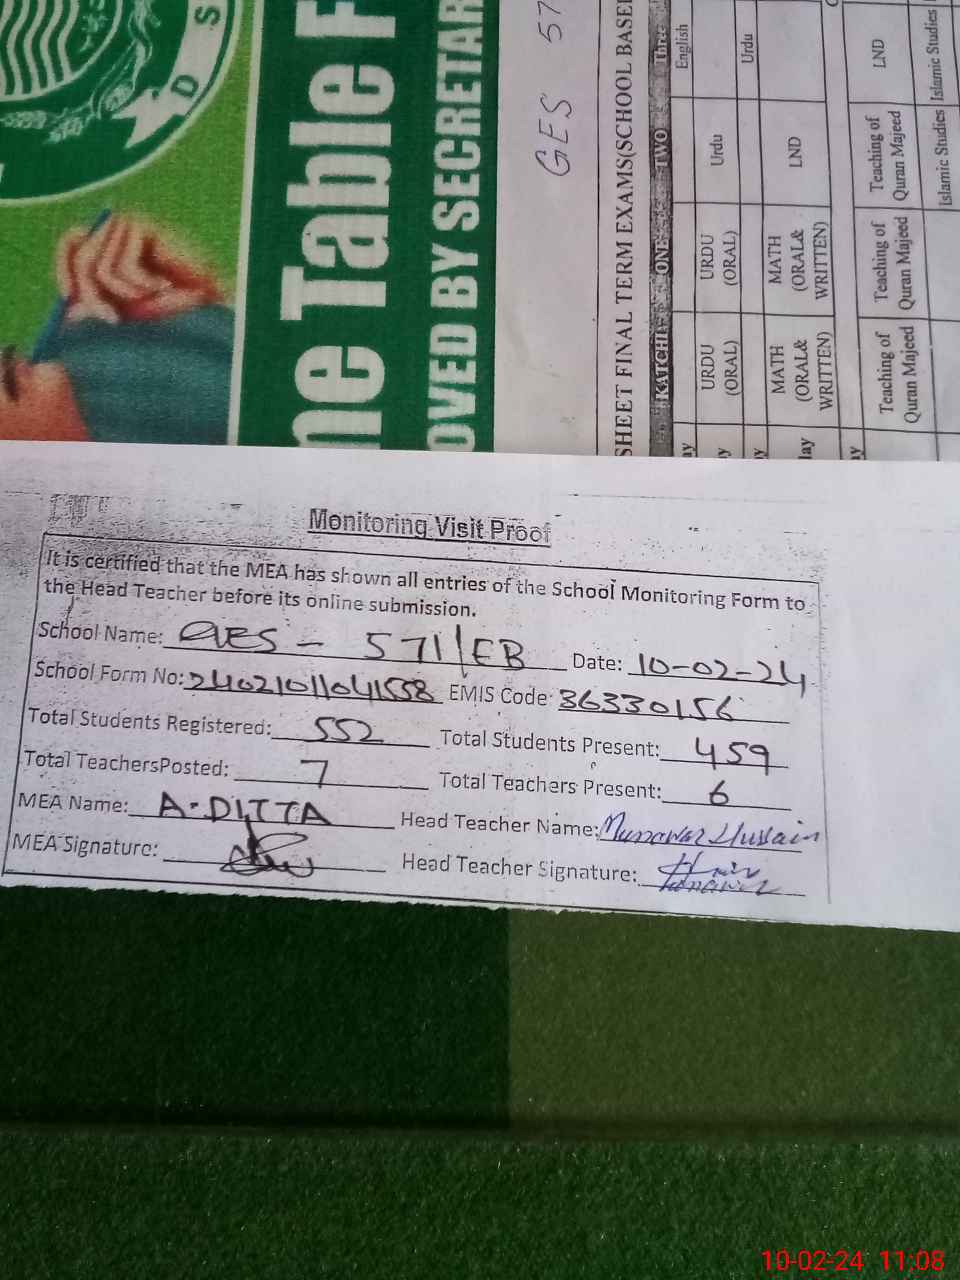 D S
me Table F
OVED BY SECRETAR
GES 57
SHEET FINAL TERM EXAMS(SCHOOL BASE
KATCHI ONE TWO Three
English
URDU (ORAL) URDU (ORAL) Urdu
Urdu
MATH (ORAL& WRITTEN) MATH (ORAL& WRITTEN) LND
Teaching of Quran Majeed Teaching of Quran Majeed Teaching of Quran Majeed LND
Islamic Studies Islamic Studies
Monitoring Visit Proof
It is certified that the MEA has shown all entries of the School Monitoring Form to
the Head Teacher before its online submission.
School Name: GES - 571/EB Date: 10-02-24
School Form No: 24021011041558 EMIS Code: 36330156
Total Students Registered: 552 Total Students Present: 459
Total TeachersPosted: 7 Total Teachers Present: 6
MEA Name: A-DITTA Head Teacher Name: Munawar Hussain
MEA Signature: Head Teacher Signature:
10-02-24 11:08